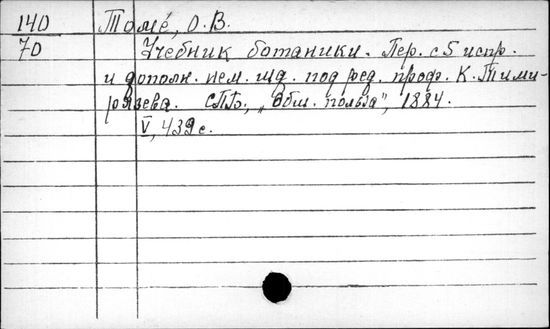 140 Томе, О.В.
70 Учебник ботаники. Пер. с 5 испр.
и дополн. нем. изд. под ред. проф. К. Тими-
рязева. СПб., „Общ. польза", 1884.
V, 439 с.